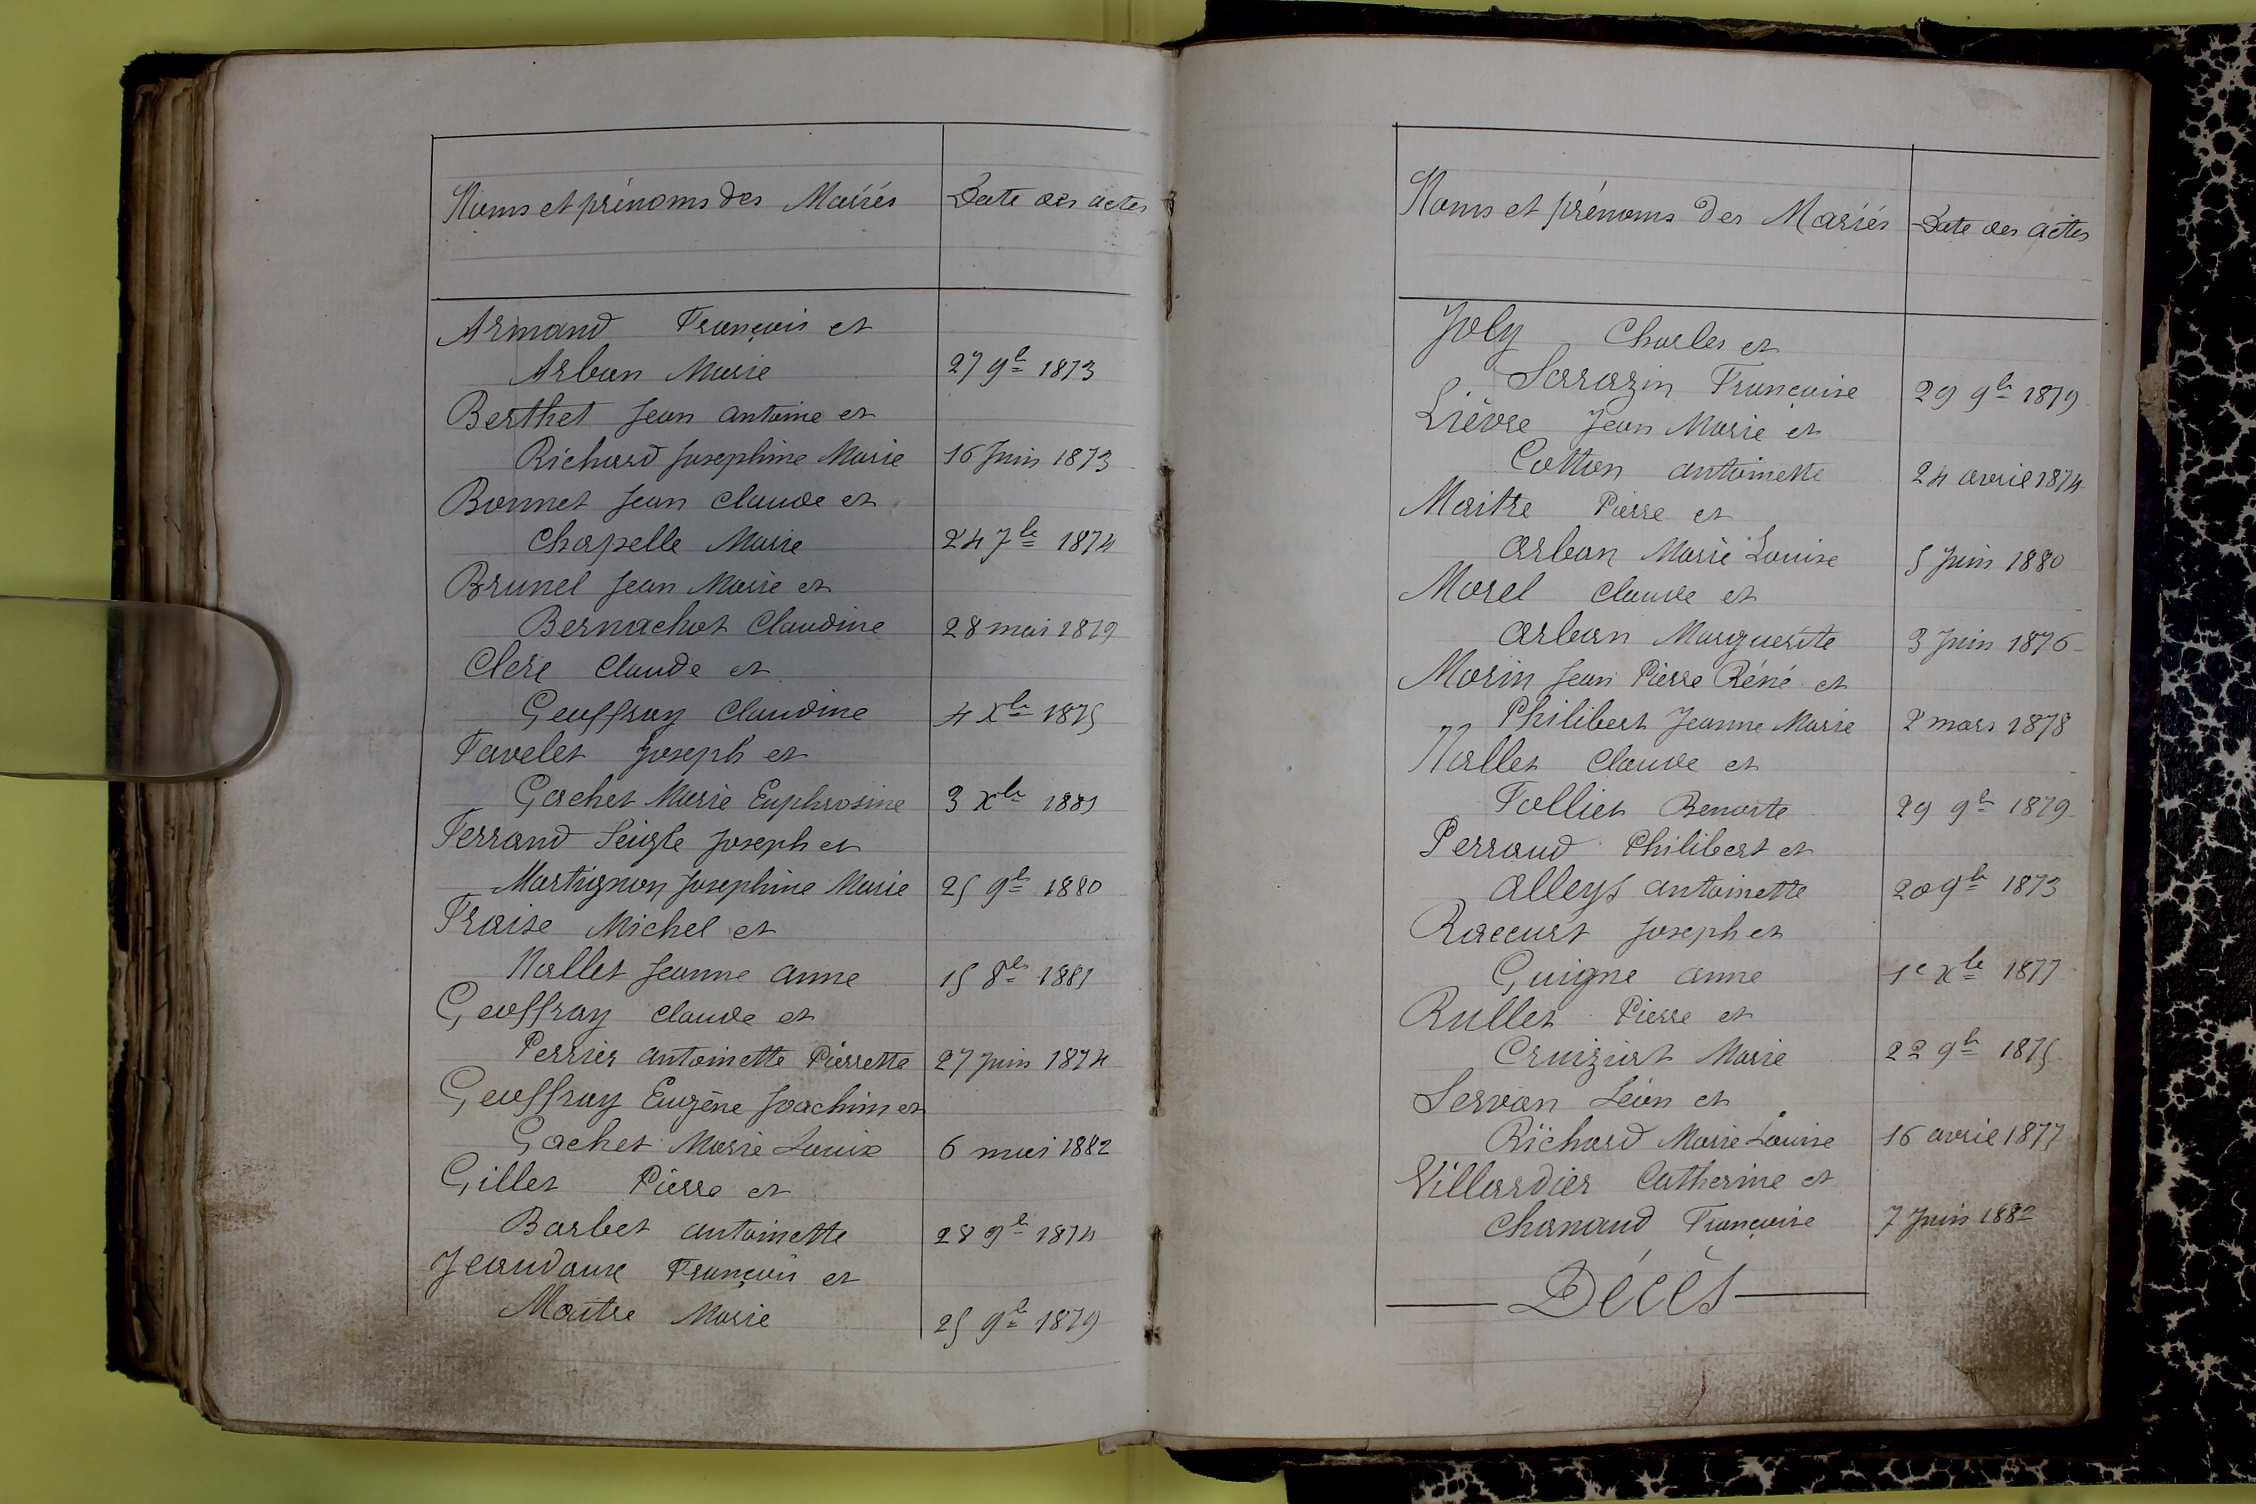 Noms et prénoms des Mariés Date des actes
Armand François et
Arban Marie 27 9b 1873
Berthet Jean antoine et
Richard Josephine Marie 16 Juin 1873
Bonnet Jean Claude et
Chapelle Marie 24 7bre 1874
Brunel Jean Marie et
Bernachot Claudine 28 mai 1879
Clere Claude et
Geoffray Claudine 4 Xbre 1875
Favelet Joseph et
Gachet Marie Euphrosine 3 Xbre 1881
Ferrand Seigle Joseph et
Martignon Josephine Marie 25 9bre 1880
Fraise Michel et
Nallet Jeanne anne 15 8bre 1881
Geoffray Claude et
Perrier antoinette Pierrette 27 Juin 1874
Geoffray Eugène Joachim et
Gachet Marie Louise 6 mai 1882
Gillet Pierre et
Barbet antoinette 28 9b 1874
Jeandaux François et
Maitre Marie 25 9bre 1879
Noms et prénoms des Mariés Date des actes
Joly Charles et
Sarazin Françoise 29 9bre 1879
Lièvre Jean Marie et
Cotton antoinette 24 avril 1874
Maitre Pierre et
arban Marie Louise 5 Juin 1880
Morel Claude et
arban Marguerite 3 Juin 1876
Morin Jean Pierre Réné et
Philibert Jeanne Marie 2 mars 1878
Nallet Claude et
Follier Benoite 29 9bre 1879
Perraud Philibert et
alleys antoinette 20 9bre 1873
Raccurt Joseph et
Guigne anne 1e Xbre 1877
Rullet Pierre et
Cruiziat Marie 22 9bre 1875
Servan Léon et
Richard Marie Louise 16 avril 1877
Villardier Catherine et
Chanand Françoise 7 Juin 1882
Décès